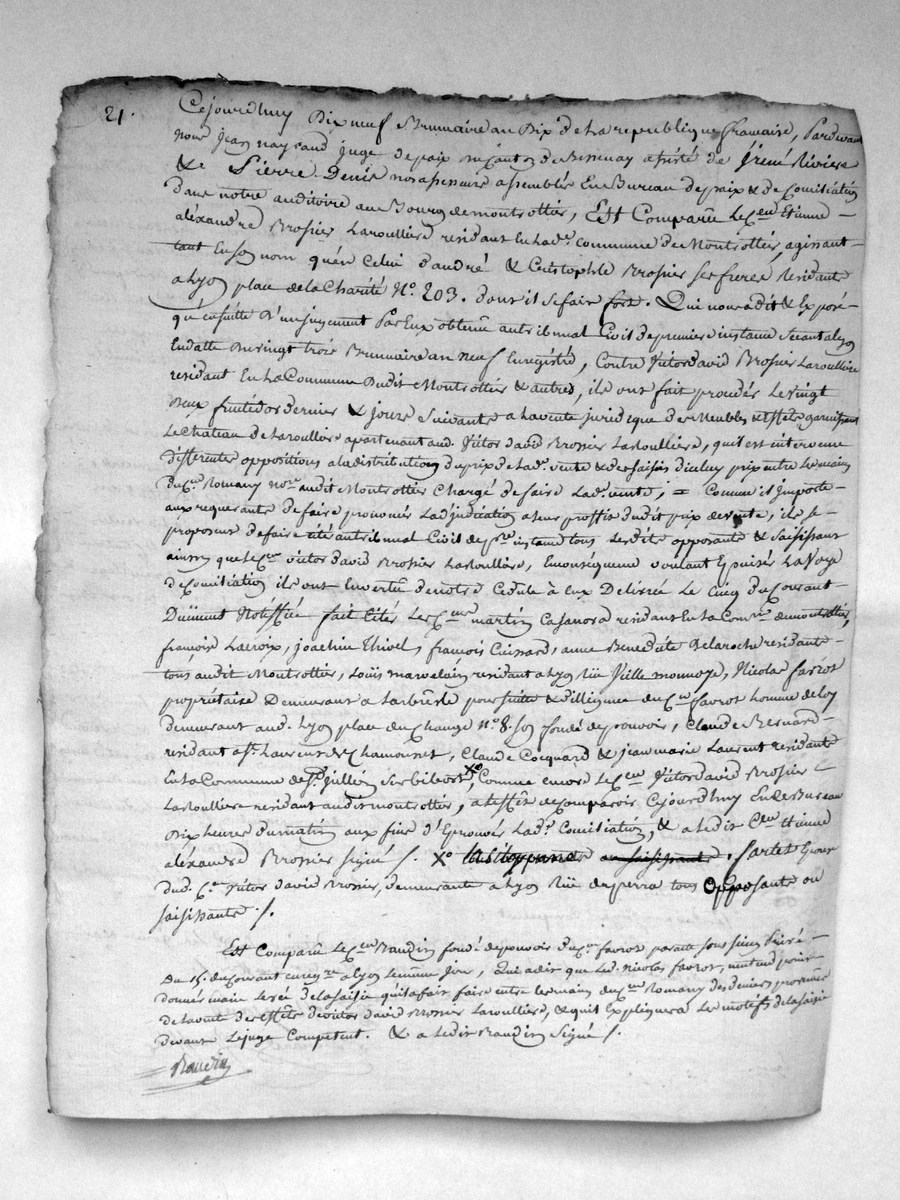 21. Cejourdhuy Dix neuf Brumaire an Dix de la republique francaise, Pardevant
nous Jean naycand Juge depaix du canton de Bessenay assisté de Iréné Riviere
& de Pierre Denis nos assesseurs assemblés En Bureau depaix & de Conciliation
dans notre auditoire au Bourg de montrottier, Est Comparu Le Cen Etienne
aléxandre Brosier Laroulliere residant En Lade. Commune de Montrottier, agissant
tant En son nom quen Celui d'andré & Cristophle Brosier ses freres residants
a Lyon place de la Charité No. 203. dont il se fait fort. Qui nous a dit & Exposé
qu'ensuitte d'un jugement Par Eux obtenu au tribunal Civil de premiere instance seant a Lyon
En datte du vingt trois Brumaire an neuf Enregistré, Contre Victor david Brosier Laroulliere
residant En La Commune dudit Montrottier & autres, ils ont fait proceder Le vingt
deux fructidor dernier & jours suivants a la vente juridique des Meubles & Effets garnissant
Le Chateau de Laroulliere apartenant aud. Victor david Brosier Laroulliere, qu'il est intervenu
differentes oppositions a la distribution du prix de Lade. vente & des saisies d'icelui prix entre Les mains
du Cen. Romany nore. audit Montrottier Chargé de faire Lade. vente, = Comme il importe
aux requerants de faire prononcer L'adjudication a leur proffit dudit prix de vente, ils se
proposent de faire citer au tribunal Civil de pre. instance tous Lesdits opposants & saisissants
ainsi que Le Cen. victor david Brosier Laroulliere, En consequence voulant Epuiser La Voye
de Conciliation ils ont En vertu de notre Cedule a Eux Delivrée Le Cinq du Courant
Duëment Notiffiée fait Citer Les Cens martin Casanova residant En La Comne. de montrottier,
françois Lacroix, Joachim Thivel, francois Cuissard, anne Benedicte Delaroche residants
tous audit Montrottier, Loüis marvelain residant a Lyon Rüe Vielle monnoye, Nicolas favrot
propriétaire Demeurant a Larbresle poursuite & dilligence du Cen favrot homme de loy
demeurant aud. Lyon place du Change No. 8. son fondé de pouvoir, Claude Bernard
residant a St. Laurent de Chamousset, Claude Cocquard & jean marie Laurent residants
En La Commune de St. Jullien sur bibost Xo, Comme encore Le Cen Victor david Brosier
Laroulliere residant audit montrottier, a l'effet de Comparoir Cejourdhuy En ce Bureau
Dix heures du matin aux fins d'Eprouver Lade. Conciliation, & a Ledit Cen Etienne
aléxandre Brosier Signé /. Xo opposants ou saisissants, Sartet Epouse
dud. Cen. Victor david Brosier, demeurante a Lyon Rüe du perra tous Opposants ou
saisissants /.
Est Comparu Le Cen Baudin fondé de pouvoir du Cen. favrot par acte sous seing Privé
Du 15. du Courant enregre. a Lyon Le meme jour, Qui a dit que Led. Nicolas favrot, n'entend point
donner main Levée de la saisie qu'il a fait faire entre Les mains du Cen Romany des deniers provenus
de la vente des Effets de victor david Brosier Laroulliere, & qu'il Expliquera Les motifs de la saisie
devant Le juge Competent. & a Ledit Baudin Signé /.
Baudin